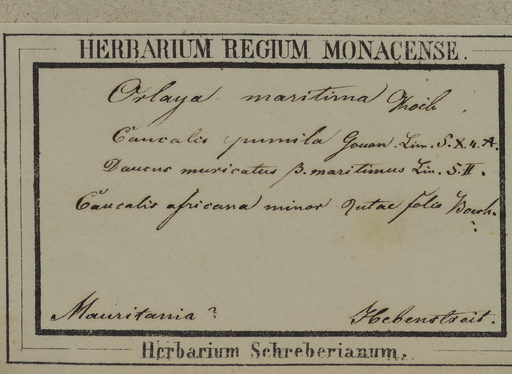 HERBARIUM REGIUM MONACENSE.
Orlaya maritima Koch.
Caucalis pumila Gouan. Lin. S. X. 4. A.
Daucus muricatus β. maritimus Lin. S. II.
Caucalis africana minor rutae folio Boerh.
Mauritania?
Hebenstreit.
Herbarium Schreberianum.